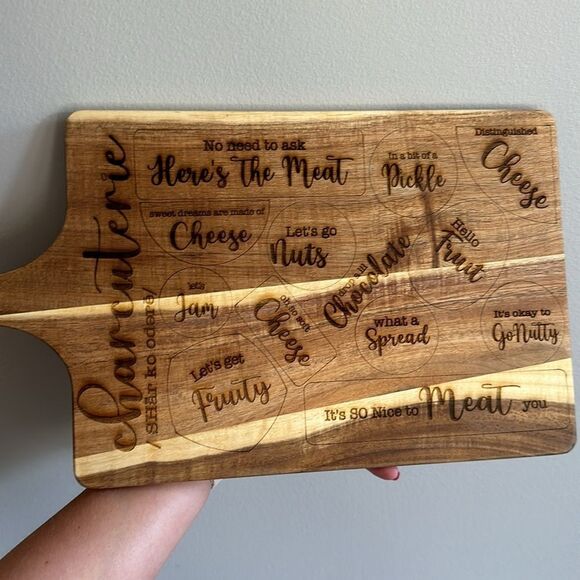 charcuterie
/SHär ko odarē/
No need to ask
Here's The Meat
In a bit of a
Pickle
Distinguished
Cheese
sweet dreams are made of
Cheese
Let's go
Nuts
Chocolate
Hello
Fruit
let's
Jam
oh so soft
Cheese
what a
Spread
It's okay to
Go Nutty
Let's get
Fruity
It's SO Nice to Meat you